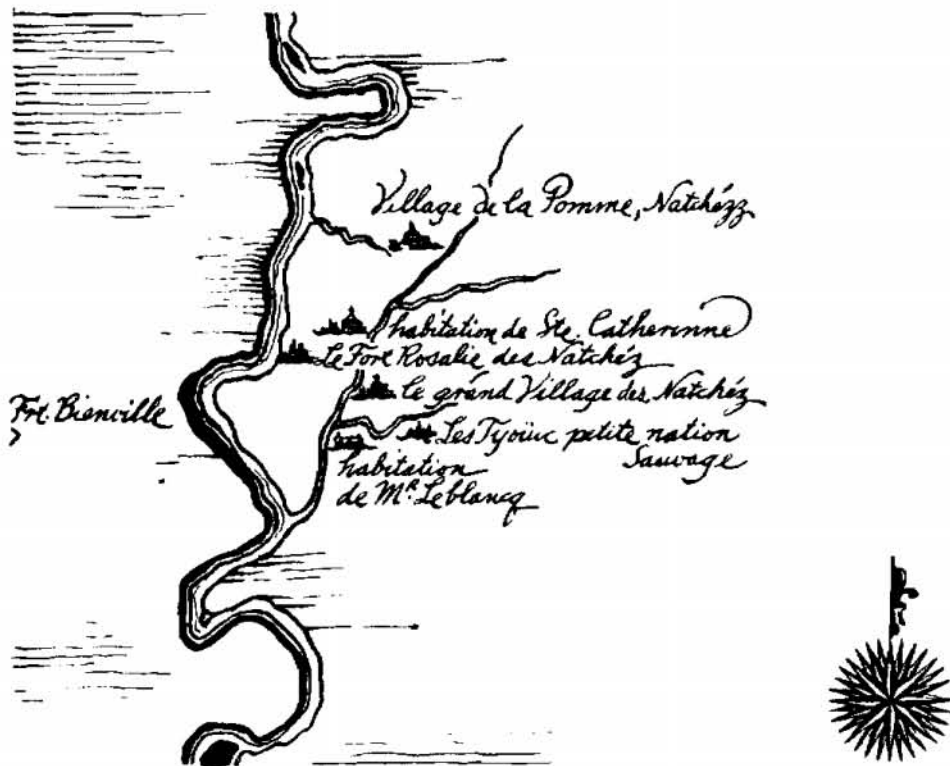 Village de la Pomme, Natchézz
habitation de Ste. Catherinne
Le Fort Rosalie des Natchéz
le grand Village des Natchéz
Frt. Bienville
Les Tyoüc petite nation
Sauvage
habitation
de Mr. Leblancq